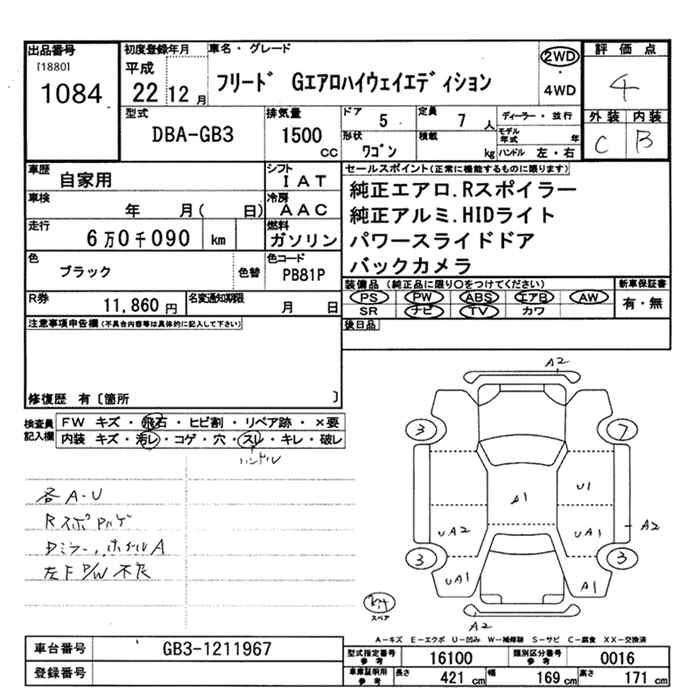 出品番号
[1880]
1084
初度登録年月
平成
22 12 月
車名・グレード
フリード Gエアロハイウェイエディション
2WD
・
4WD
評価点
4
外装 内装
C B
型式
DBA-GB3
排気量
1500
CC
ドア
5
定員
7 人
ディーラー・並行
形状
ワゴン
積載
kg
モデル年式 年
ハンドル 左・右
車歴
自家用
シフト
IAT
車検
年 月( 日)
冷房
AAC
走行
6万0千090 km
燃料
ガソリン
色
ブラック
色替
色コード
PB81P
R券
11,860 円
名変通知期限
月 日
セールスポイント(正常に機能するものに限ります)
純正エアロ.Rスポイラー
純正アルミ.HIDライト
パワースライドドア
バックカメラ
装備品 (純正品に限り○をつけてください)
PS PW ABS エアB AW
SR ナビ TV カワ
新車保証書
有・無
後日品
注意事項申告欄(不具合内容等は具体的に記入して下さい)
修復歴 有〔箇所 〕
検査員記入欄
FW キズ・飛石・ヒビ割・リペア跡・×要
内装 キズ・汚レ・コゲ・穴・スレ・キレ・破レ
ハンドル
各A-U
Rスポ
ホイルA
左F P/W 不良
A2
3
7
A1
U1
UA2
UA1
A2
3
UA1
A1
3
A2
スペア
A-キズ E-エクボ U-凹み W-補修跡 S-サビ C-腐食 XX-交換済
車台番号
GB3-1211967
登録番号
型式指定番号
参考
16100
類別区分番号
参考
0016
車庫証明用
参考
長さ
421 cm
幅
169 cm
高さ
171 cm